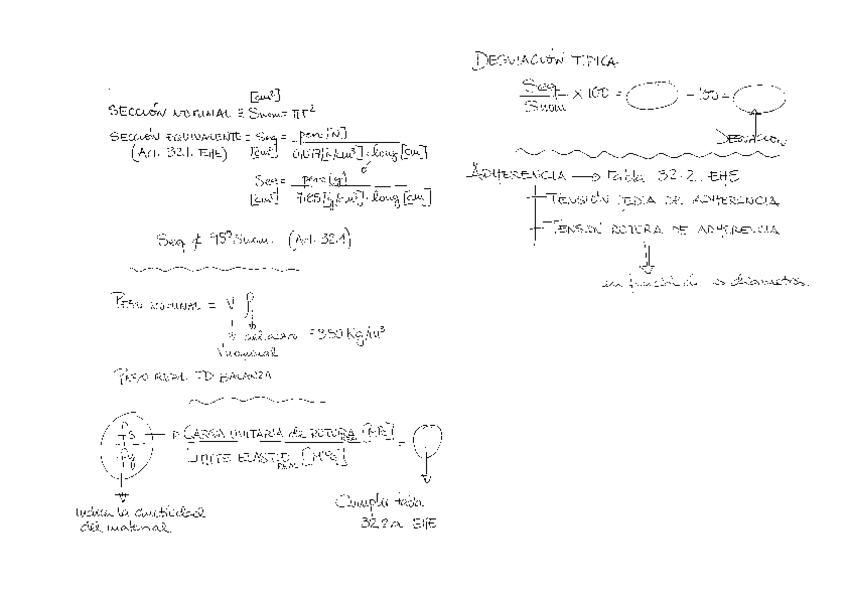 [cm²]
SECCIÓN NOMINAL = Snom = πr²
SECCIÓN EQUIVALENTE = Seq = peso [N]
(Art. 32.1. EHE) [cm²] [k/cm³] · long [cm]
ó
Seq = peso (g)
[cm²] 7.85 [g/cm³] · long [cm]
Seq ≮ 95% Snom. (Art. 32.1)
PESO NOMINAL = V
del acero =
V nominal
PESO REAL BALANZA
fs → CARGA UNITARIA de ROTURA =
fy LÍMITE ELASTICO REAL
indican la ductilidad
del material.
Cumplir tabla
32.2.a EHE
DESVIACIÓN TIPICA
Seq
Snom × 100 = - 100 =
DESVIACION
ADHERENCIA → tabla 32.2. EHE
TENSIÓN MEDIA DE ADHERENCIA
TENSION ROTURA DE ADHERENCIA
en función de los diametros.